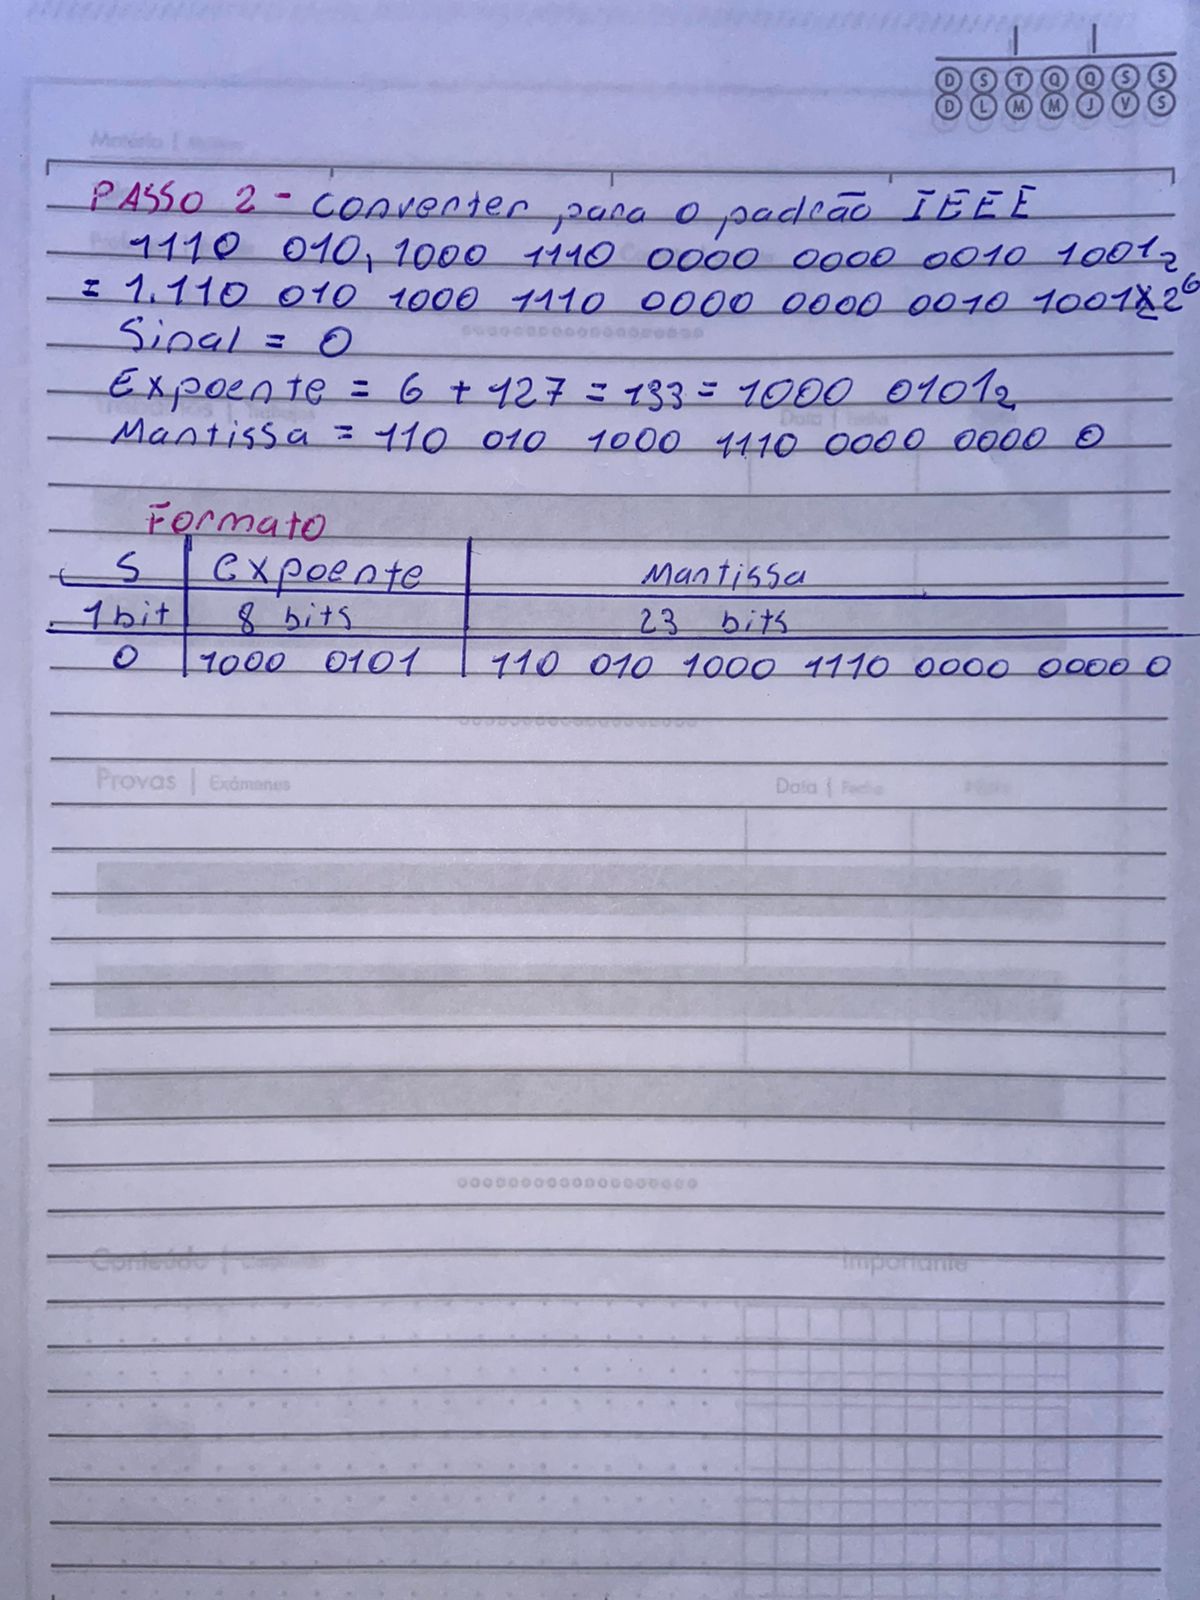 D S T Q Q S S
D L M M J V S
PASSO 2 - converter para o padrão IEEE
1110 010, 1000 1110 0000 0000 0010 1001₂
= 1.110 010 1000 1110 0000 0000 0010 1001 x 2⁶
Sinal = 0
Expoente = 6 + 127 = 133 = 1000 0101₂
Mantissa = 110 010 1000 1110 0000 0000 0
Formato
S Expoente Mantissa
1 bit 8 bits 23 bits
0 1000 0101 110 010 1000 1110 0000 0000 0
Provas | Exámenes Data | Fecha
Conteúdo | Importante